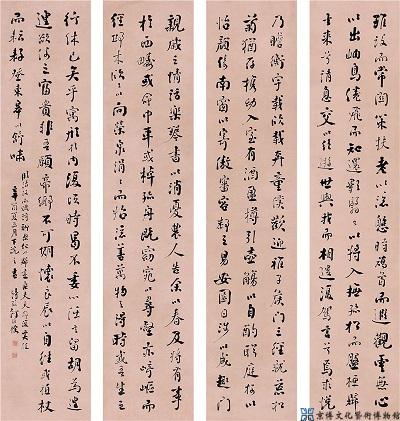 雖設而常關策扶老以流憩時矯首而遐觀雲無心
以出岫鳥倦飛而知還影翳翳以將入撫孤松而盤桓歸
去來兮請息交以絕遊世與我而相遺復駕言兮焉求悅
乃瞻衡宇載欣載奔僮僕歡迎稚子候門三徑就荒松
菊猶存攜幼入室有酒盈樽引壺觴以自酌眄庭柯以
怡顏倚南窗以寄傲審容膝之易安園日涉以成趣門
親戚之情話樂琴書以消憂農人告余以春及將有事
於西疇或命巾車或棹孤舟既窈窕以尋壑亦崎嶇而
經邱木欣欣以向榮泉涓涓而始流善萬物之得時感吾生之
行休已矣乎寓形於內復幾時曷不委心任去留胡為遑
遑欲何之富貴非吾願帝鄉不可期懷良辰以孤往或植杖
而耘耔登東皋以舒嘯
京博文化藝術博物館